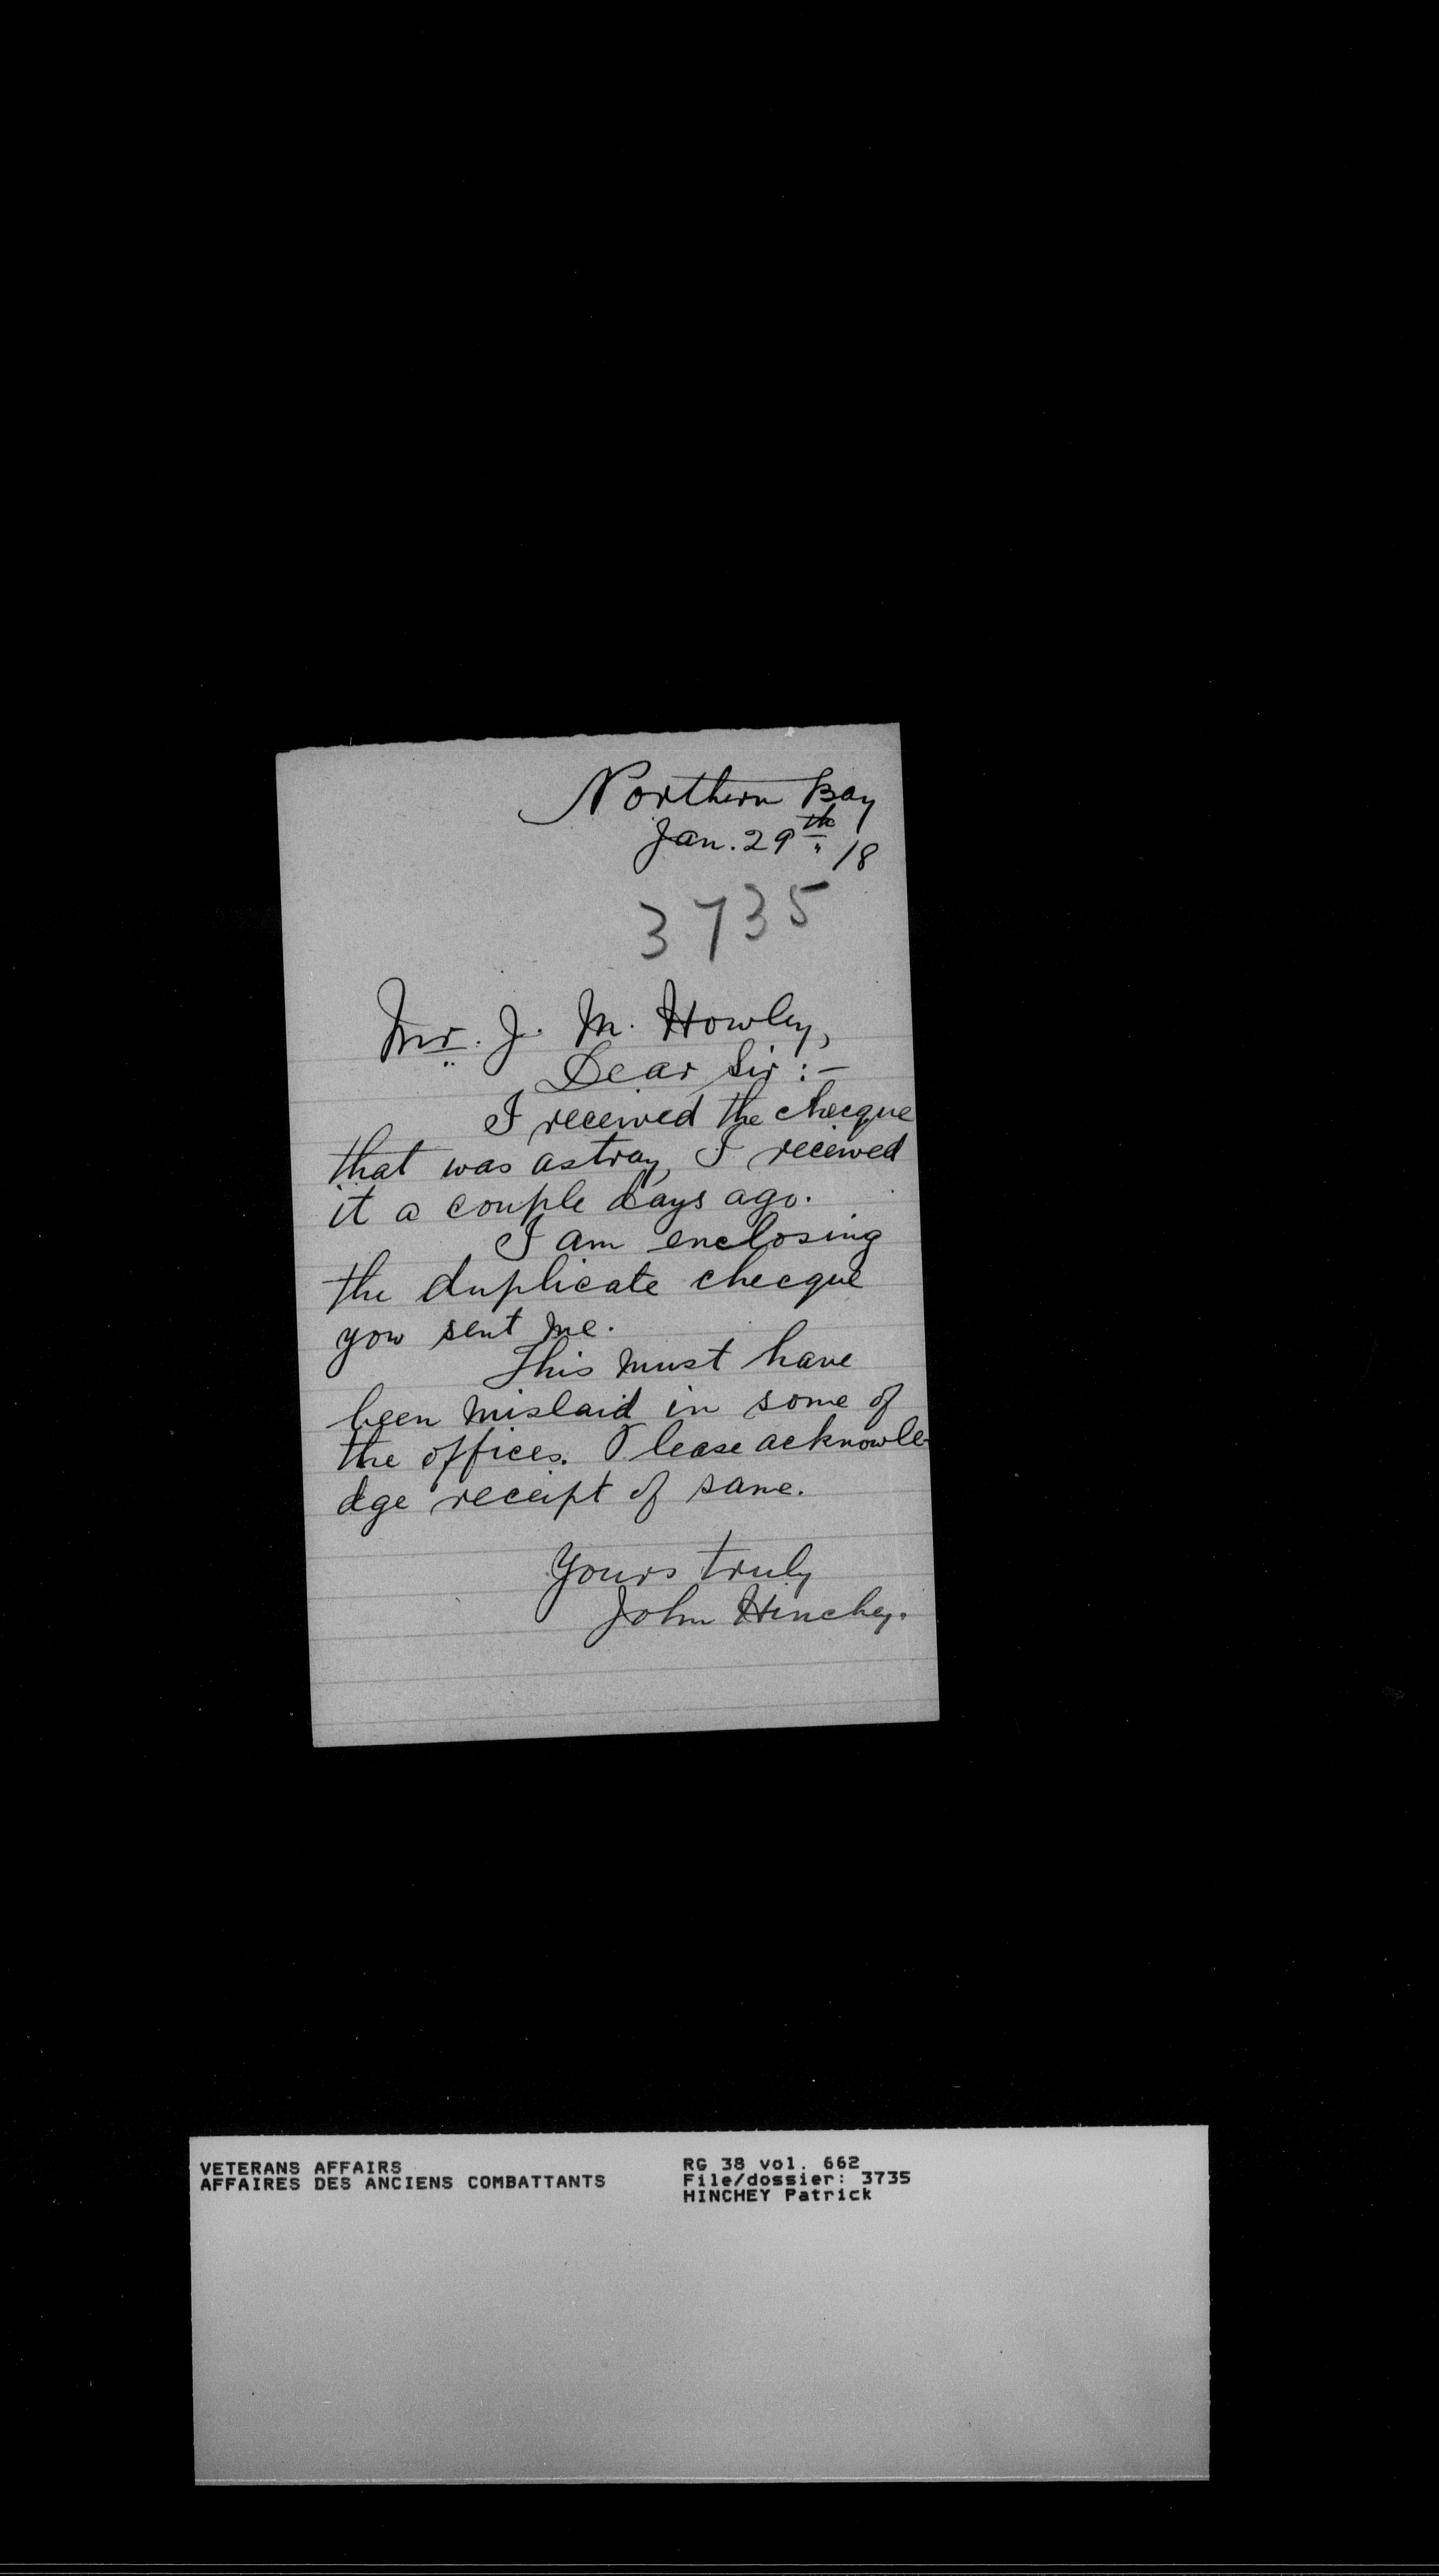 Northern Bay
Jan. 29th /18
3735
Mr. J. M. Howley,
Dear Sir :-
I received the checque
that was astray, I received
it a couple days ago.
I am enclosing
the duplicate checque
you sent me.
This must have
been mislaid in some of
the offices. Please acknowle-
dge receipt of same.
Yours truly
John Hinchey.
VETERANS AFFAIRS
AFFAIRES DES ANCIENS COMBATTANTS
RG 38 vol. 662
File/dossier: 3735
HINCHEY Patrick